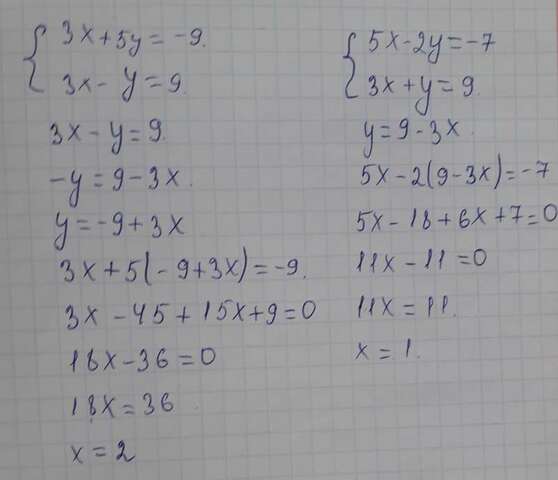 3x+5y=-9.
3x-y=9.
3x-y=9.
-y=9-3x
y=-9+3x
3x+5(-9+3x)=-9.
3x-45+15x+9=0
18x-36=0
18x=36
x=2
5x-2y=-7
3x+y=9.
y=9-3x.
5x-2(9-3x)=-7
5x-18+6x+7=0
11x-11=0
11x=11.
x=1.